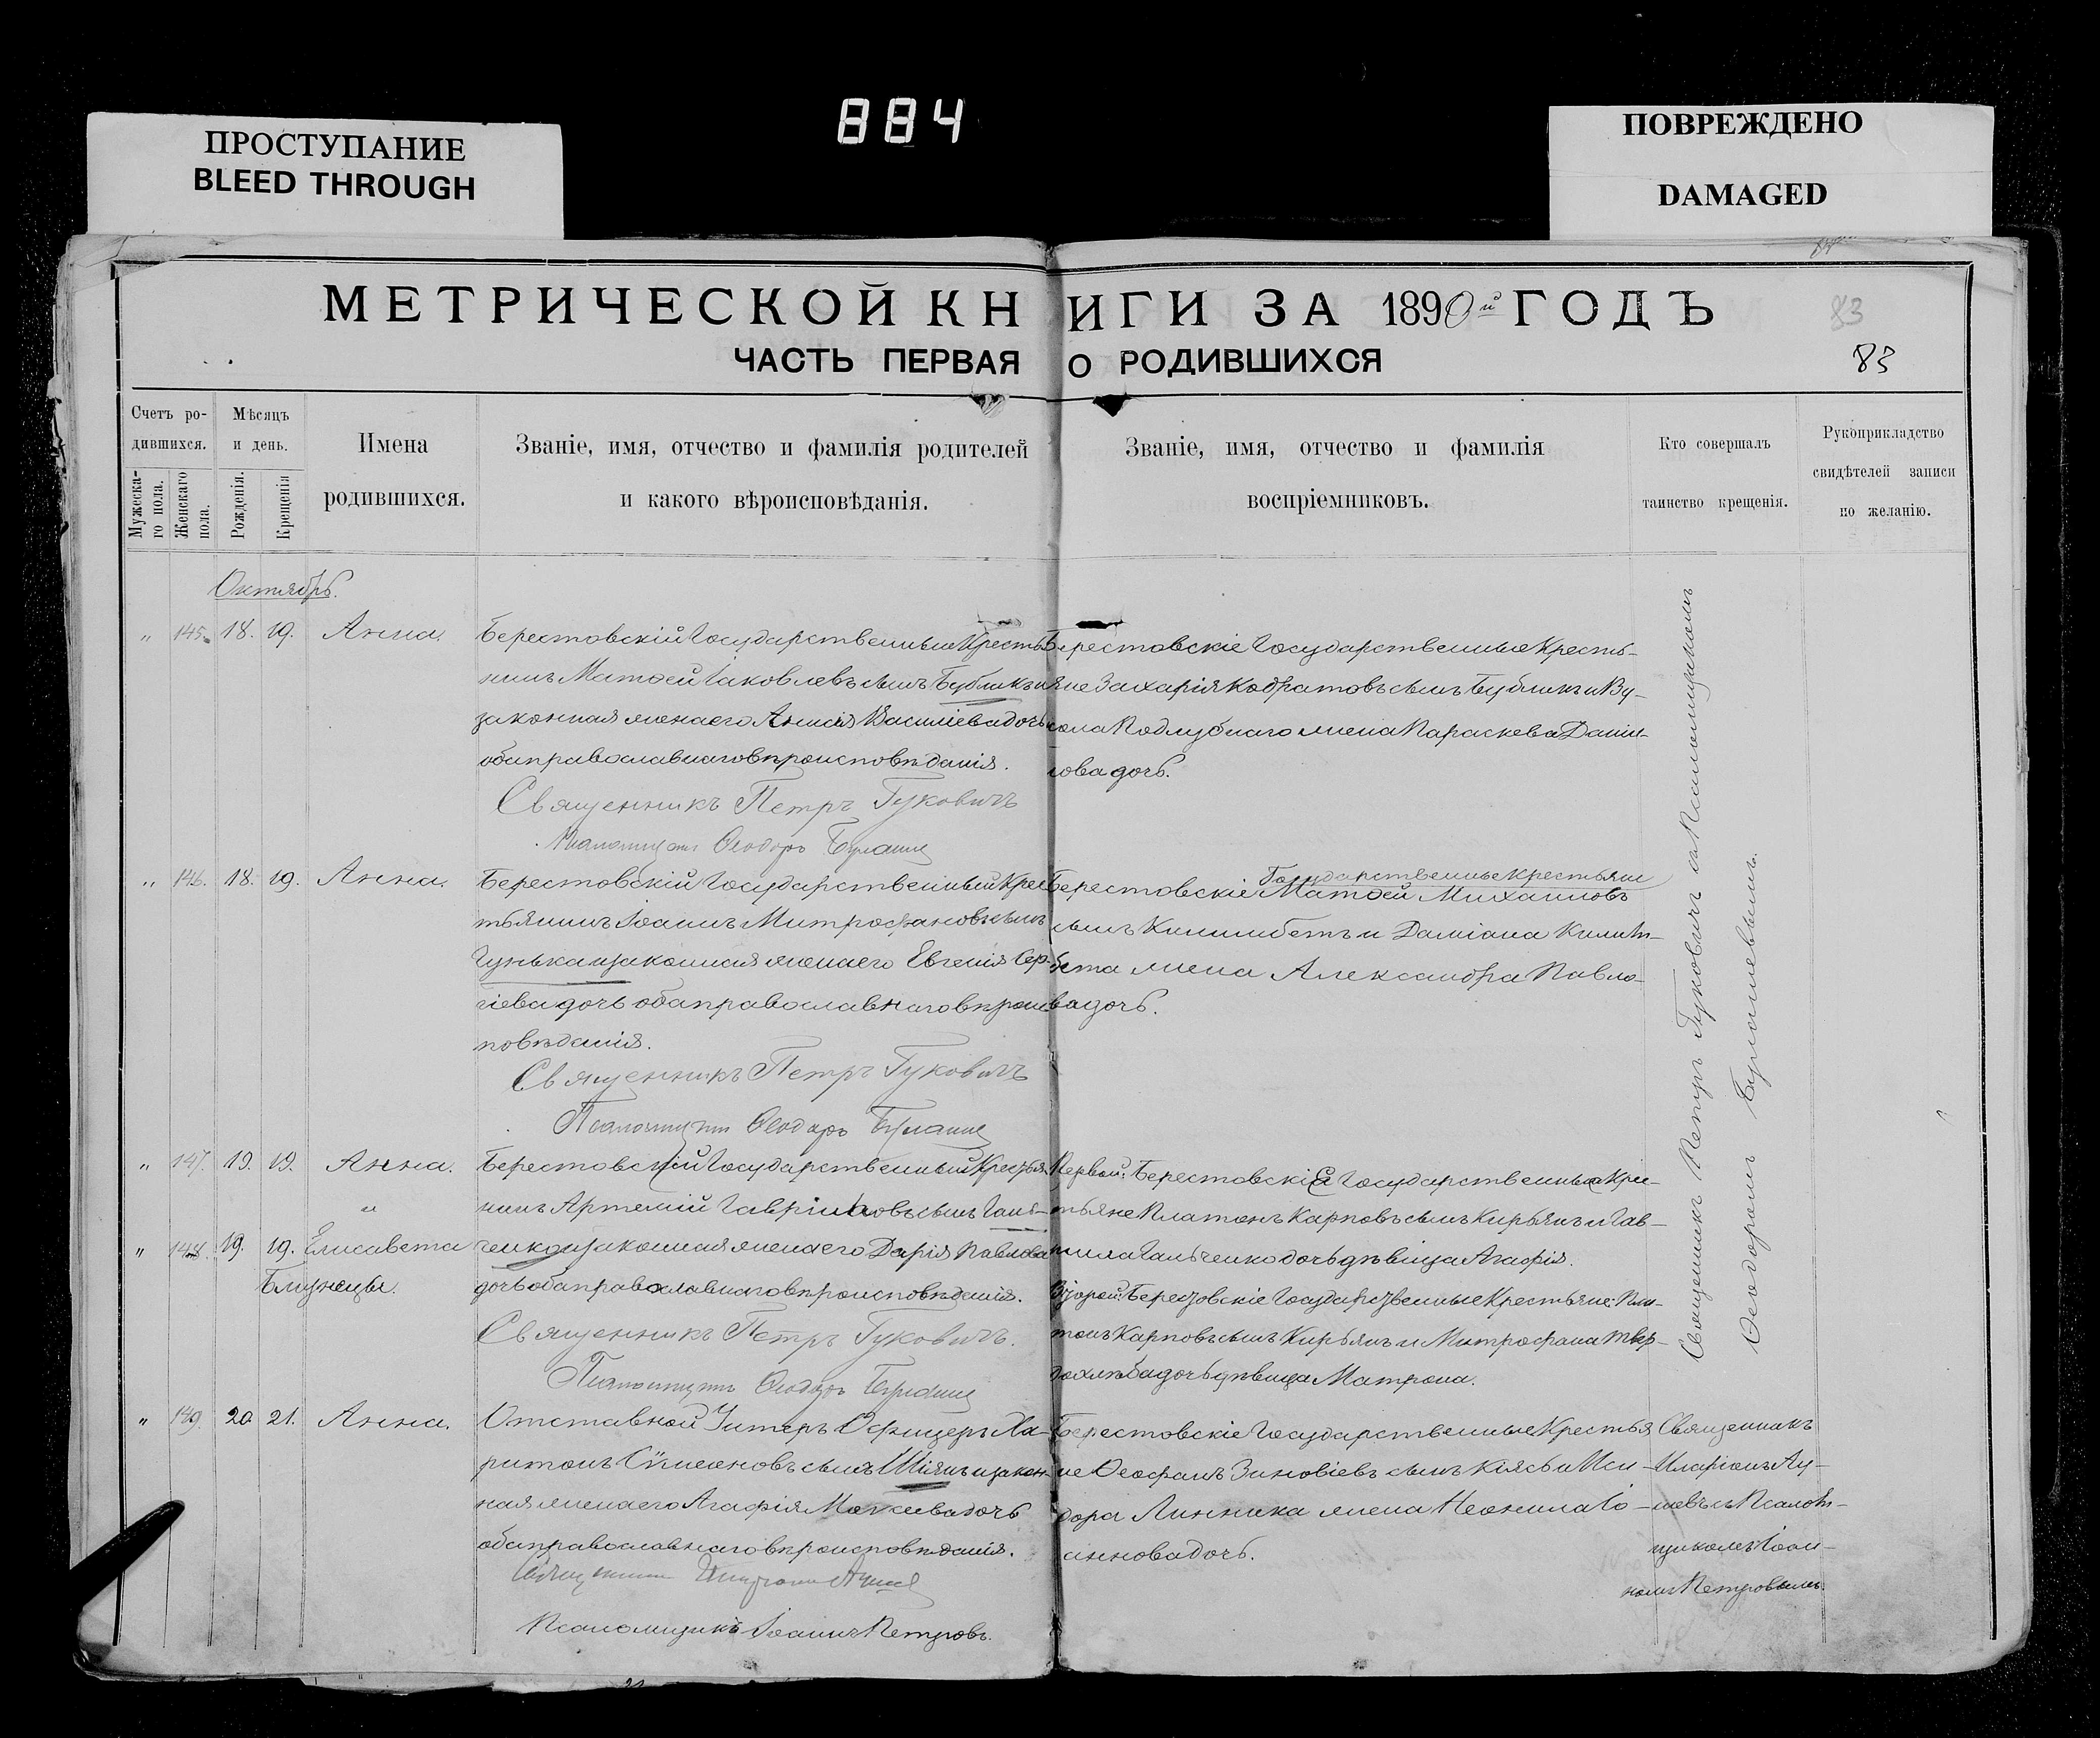 884
ПРОСТУПАНИЕ
BLEED THROUGH
ПОВРЕЖДЕНО
DAMAGED
МЕТРИЧЕСКОЙ КНИГИ ЗА 1890й ГОДЪ
83
ЧАСТЬ ПЕРВАЯ О РОДИВШИХСЯ
83
Счетъ ро-
дившихся.
Мужеска-
го пола.
Женскаго
пола.
Мѣсяцъ
и день.
Рожденія.
Крещенія
Имена
родившихся.
Званіе, имя, отчество и фамилія родителей
и какого вѣроисповѣданія.
Званіе, имя, отчество и фамилія
воспріемниковъ.
Кто совершалъ
таинство крещенія.
Рукоприкладство
свидѣтелей записи
по желанію.
Октябрь.
" 145. 18. 19. Анна.
Берестовскій Государственные Кресть
нинъ Матѳей Іаковлевъ сынъ Бубликъ и
законная жена его Анисія Василіева дочь
оба православнаго вѣроисповѣданія.
Священникъ Петръ Гуковичъ
Псаломщикъ Ѳеодоръ
Берестовскіе Государственные Кресть-
яне Захарія Кодратовъ сынъ Бубликъ и Ву-
кола Подлубнаго жена Параскева Дани-
лова дочь.
" 146. 18. 19. Анна.
Берестовскій Государственный Крес
тьянинъ Іоаннъ Митрофановъ сынъ
Гунька и законная жена его Евгенія Сер-
гіева дочь оба православнаго вѣроис
повѣданія.
Священникъ Петръ Гуковичъ
Псаломщикъ Ѳеодоръ
Государственные крестьяне
Берестовскіе Матѳей Михаиловъ
сынъ Килимбетъ и Даміана Килим-
бета жена Александра Павло-
ва дочь.
" 147. 19. 19. Анна.
"
" 148. 19. 19. Елисавета
Близнецы.
Берестовскій Государственный Крестья
нинъ Артемій Гавріиловъ сынъ Галь-
ченко и законная жена его Дарія Павлова
дочь оба православнаго вѣроисповѣданія.
Священникъ Петръ Гуковичъ.
Псаломщикъ Ѳеодоръ
Первой: Берестовскіе Государственные Крес-
тьяне Платонъ Карповъ сынъ Кирьянъ и Гав-
риила Гальченко дочь дѣвица Агафія.
Второй: Берестовскіе Государственные Крестьяне: Пла-
тонъ Карповъ сынъ Кирьянъ и Митрофана Твер-
дохлѣба дочь дѣвица Матрона.
Священникъ Петръ Гуковичъ съ Псаломщикомъ
Ѳеодоромъ
" 149. 20. 21. Анна.
Отставной Унтеръ Офицеръ Ха-
ритонъ Сѵмеоновъ сынъ Шіянъ и закон-
ная жена его Агафія Моисеева дочь
оба православнаго вѣроисповѣданія.
Священникъ
Псаломщикъ Іоаннъ Петровъ.
Берестовскіе Государственные Крестья
не Ѳеофанъ Зиновіевъ сынъ Кіясь и Иси-
дора Линника жена Неонила Іо-
аннова дочь.
Священникъ
Иларіонъ
съ Псалом-
щикомъ Іоан-
номъ Петровымъ.